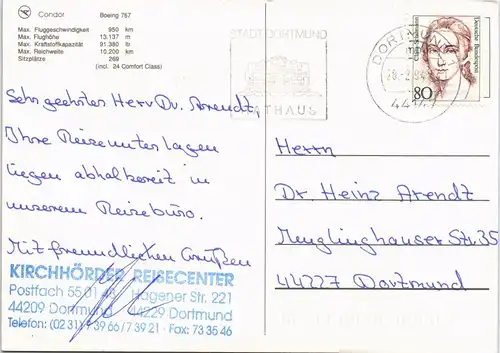 Condor Boeing 767
Max. Fluggeschwindigkeit 950 km
Max. Flughöhe 13.137 m
Max. Kraftstoffkapazität 91.380 lb
Max. Reichweite 10.200 km
Sitzplätze 269
(incl. 24 Comfort Class)
Sehr geehrter Herr Dr. Arendt,
Ihre Reiseunterlagen
liegen abholbereit in
unserem Reisebüro.
Mit freundlichen Grüßen
KIRCHHÖRDER REISECENTER
Postfach 55 01 Hagener Str. 221
44209 Dortmund 44229 Dortmund
Telefon: (02 31) 7 39 66 / 7 39 21 · Fax: 73 35 46
RATHAUS
DORTMUND
80
Deutsche Bundespost
Herrn
Dr. Heinz Arendt
Menglinghauser Str. 35
44227 Dortmund